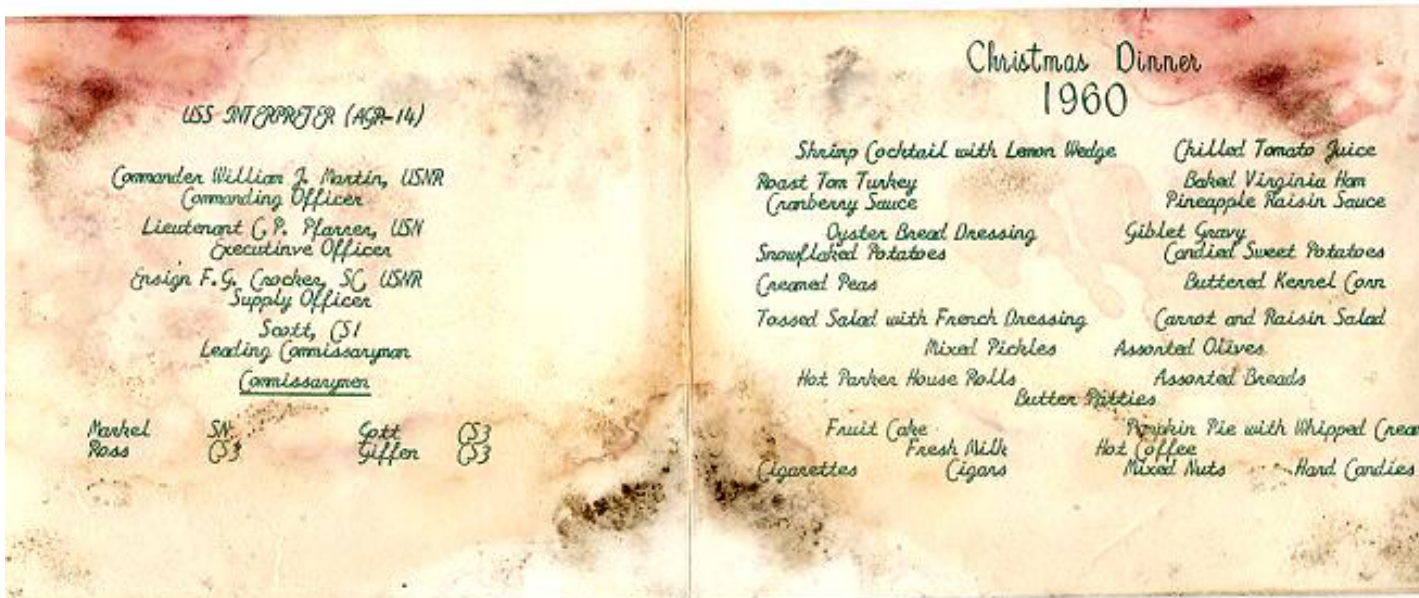 USS INTERPRETER (AGR-14)
Commander William J. Martin, USNR
Commanding Officer
Lieutenant C. P. Pfarrer, USN
Executinve Officer
Ensign F. G. Crocker, SC, USNR
Supply Officer
Scott, CS1
Leading Commissaryman
Commissarymen
Markel SN Gott CS3
Ross CS3 Giffen CS3
Christmas Dinner
1960
Shrimp Cocktail with Lemon Wedge Chilled Tomato Juice
Roast Tom Turkey Baked Virginia Ham
Cranberry Sauce Pineapple Raisin Sauce
Oyster Bread Dressing Giblet Gravy
Snowflaked Potatoes Candied Sweet Potatoes
Creamed Peas Buttered Kernel Corn
Tossed Salad with French Dressing Carrot and Raisin Salad
Mixed Pickles Assorted Olives
Hot Parker House Rolls Assorted Breads
Butter Patties
Fruit Cake Pumpkin Pie with Whipped Cream
Fresh Milk Hot Coffee
Cigarettes Cigars Mixed Nuts Hard Candies